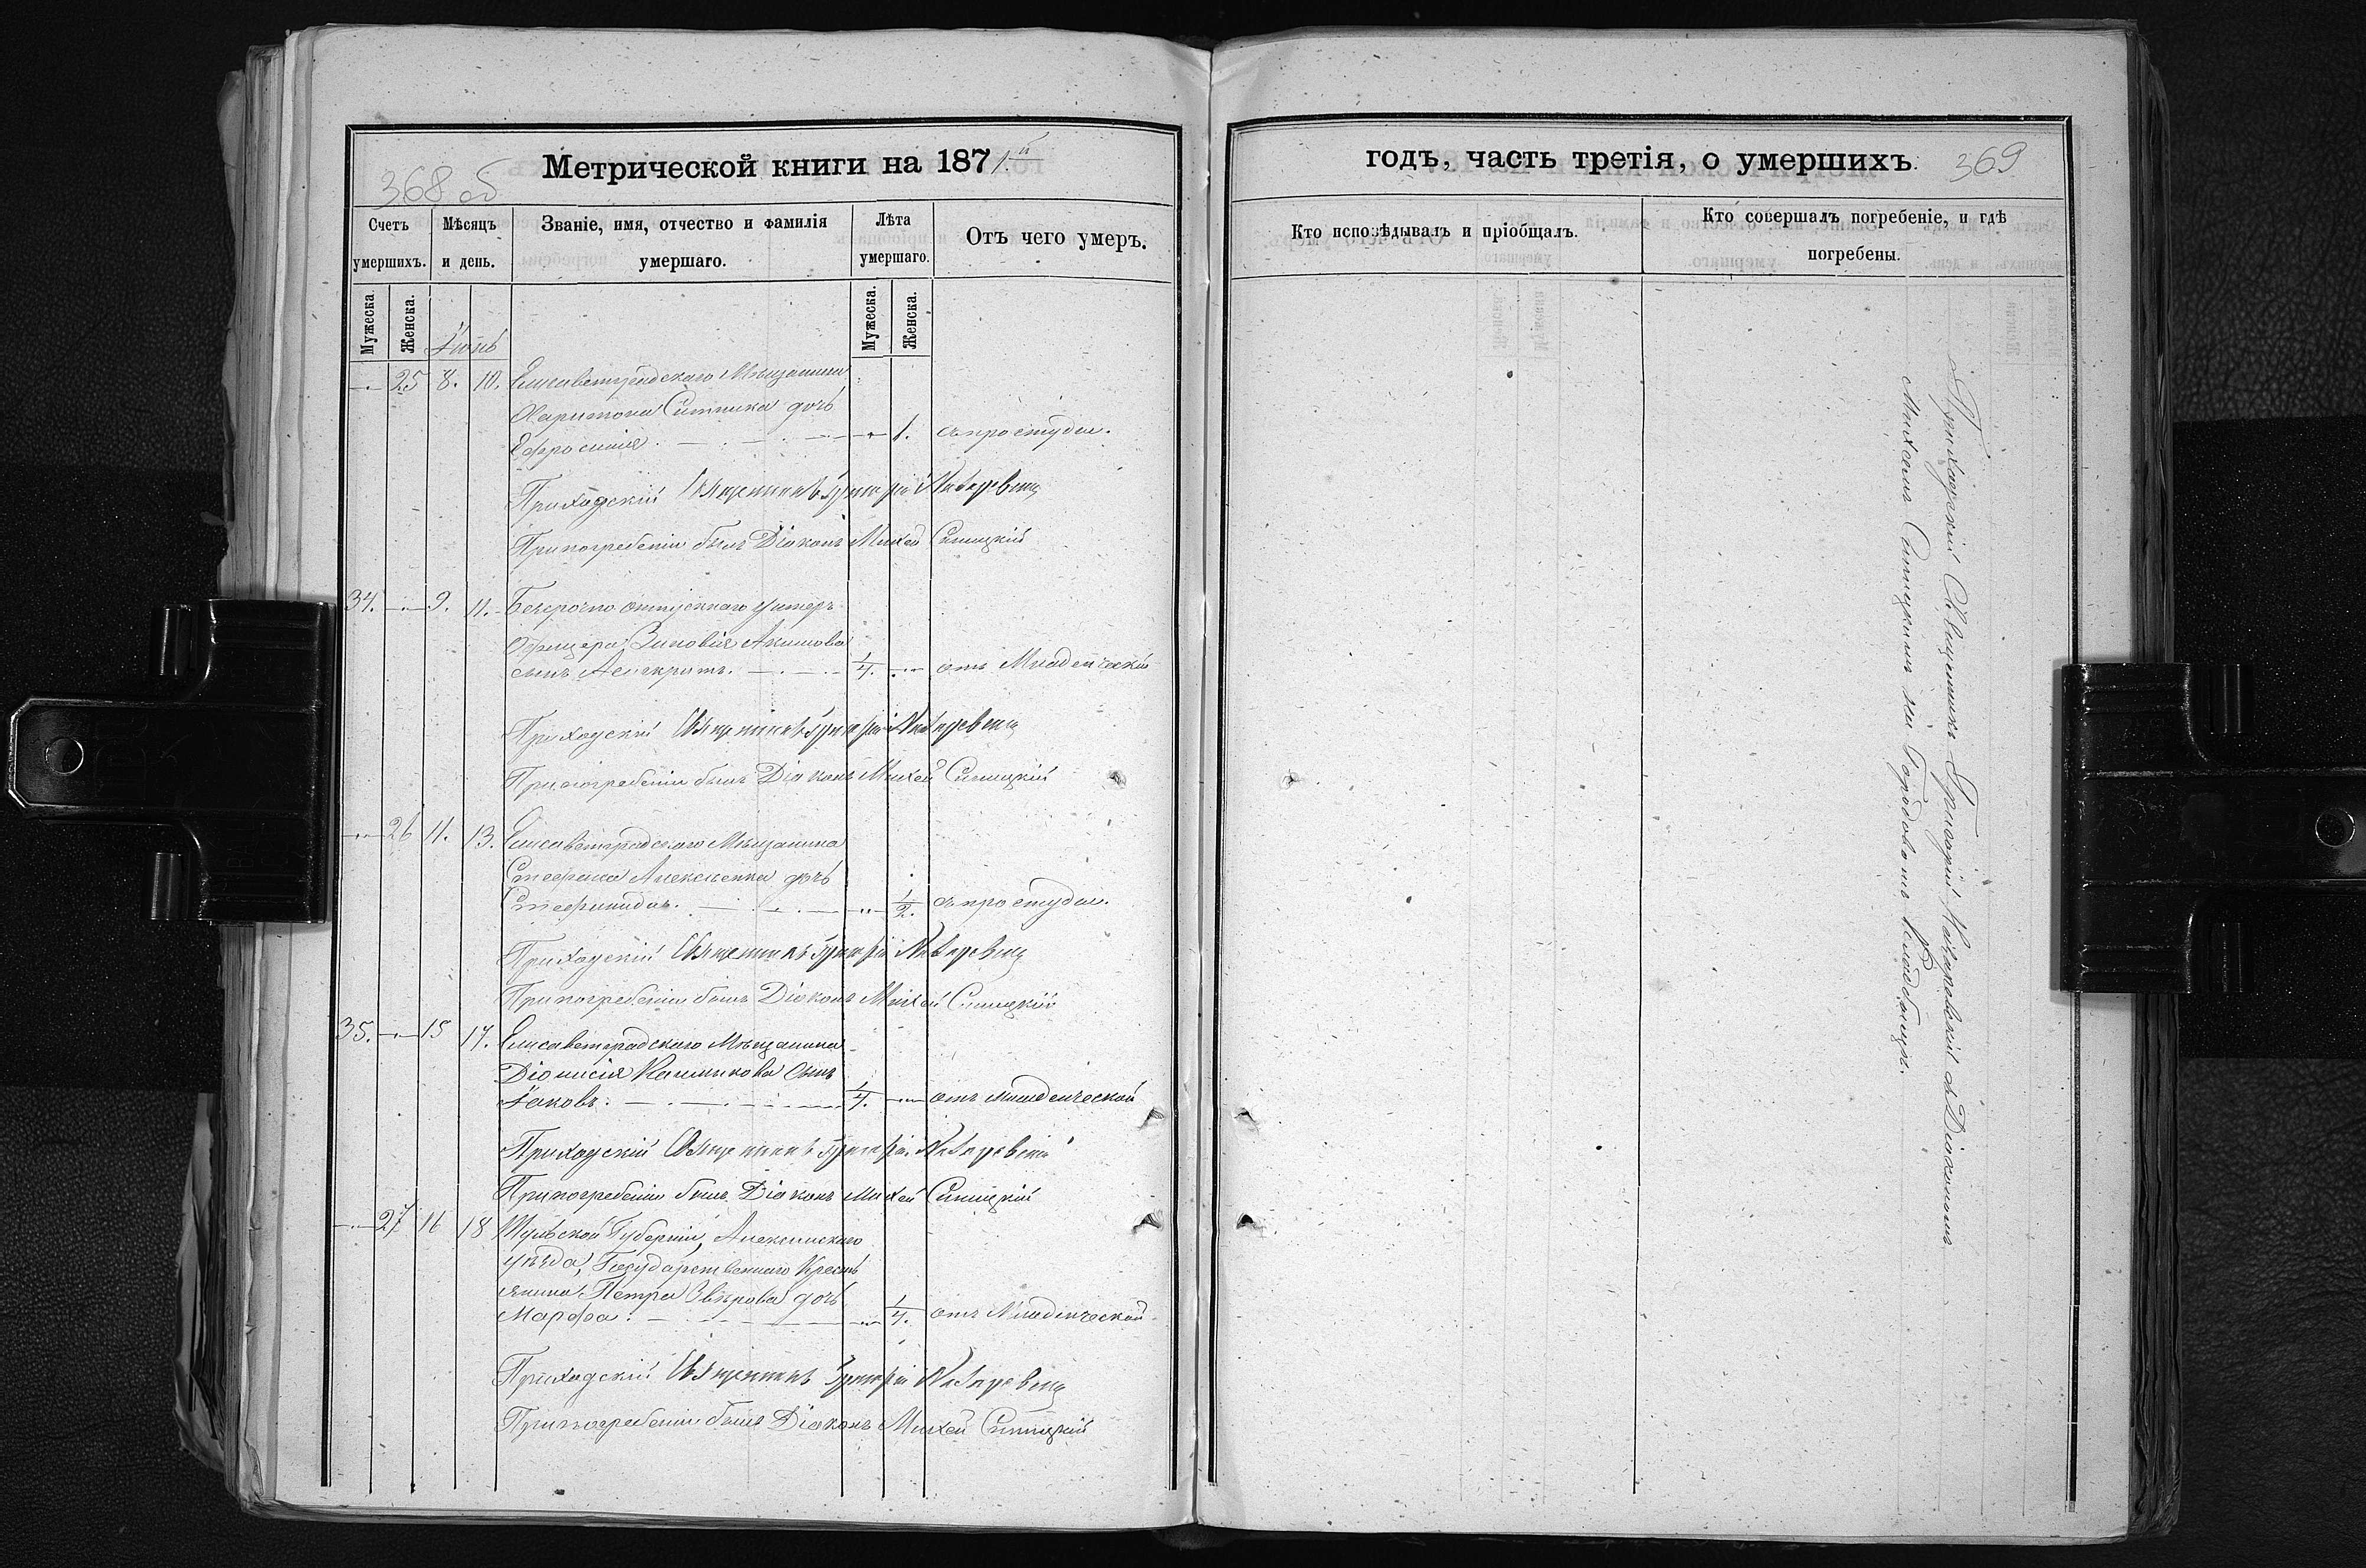 Метрической книги на 1871й
368 об
Счетъ умершихъ.
Мѣсяцъ и день.
Званіе, имя, отчество и фамилія умершаго.
Лѣта умершаго.
Отъ чего умеръ.
Мужеска.
Женска.
Мужеска.
Женска.
Іюнь
25 8. 10. Елисаветградскаго Мѣщанина
Харитона Ситника дочь
Ефросинія. 1. съ простуды.
Приходскій Священникъ Григорій
При погребеніи былъ Діаконъ Михей Синицкій
34. 9. 11. Безсрочно отпускнаго Унтеръ
Офицера Зиновія Акимова
сынъ 1/4. отъ Младенческой
Приходскій Священникъ Григорій
При погребеніи былъ Діаконъ Михей Синицкій
26 11. 13. Елисаветградскаго Мѣщанина
Стефана Алексѣенка дочь
Стефанида. 1/2. съ простуды.
Приходскій Священникъ Григорій
При погребеніи былъ Діаконъ Михей Синицкій
35. 15 17. Елисаветградскаго Мѣщанина
Діонисія Калмыкова сынъ
Іаковъ. 1/4. отъ младенческой
Приходскій Священникъ Григорій
При погребеніи былъ Діаконъ Михей Синицкій
27 16 18 Тульской Губерніи, Алексинскаго
уѣзда, Государственнаго Кресть
янина Петра Звѣрова дочь
Марфа. 1/4. отъ Младенческой
Приходскій Священникъ Григорій
При погребеніи былъ Діаконъ Михей Синицкій
годъ, часть третія, о умершихъ.
369
Кто исповѣдывалъ и пріобщалъ.
Кто совершалъ погребеніе, и гдѣ погребены.
Приходскій Священникъ Григорій съ Діакономъ
Михеемъ Синицкимъ на Городовомъ Кладбищѣ.